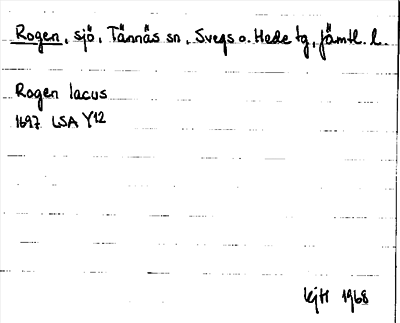 Rogen, sjö, Tännäs sn, Svegs o. Hede tg, Jämtl. l.
Rogen lacus
1697 LSA Y12
KjH 1968